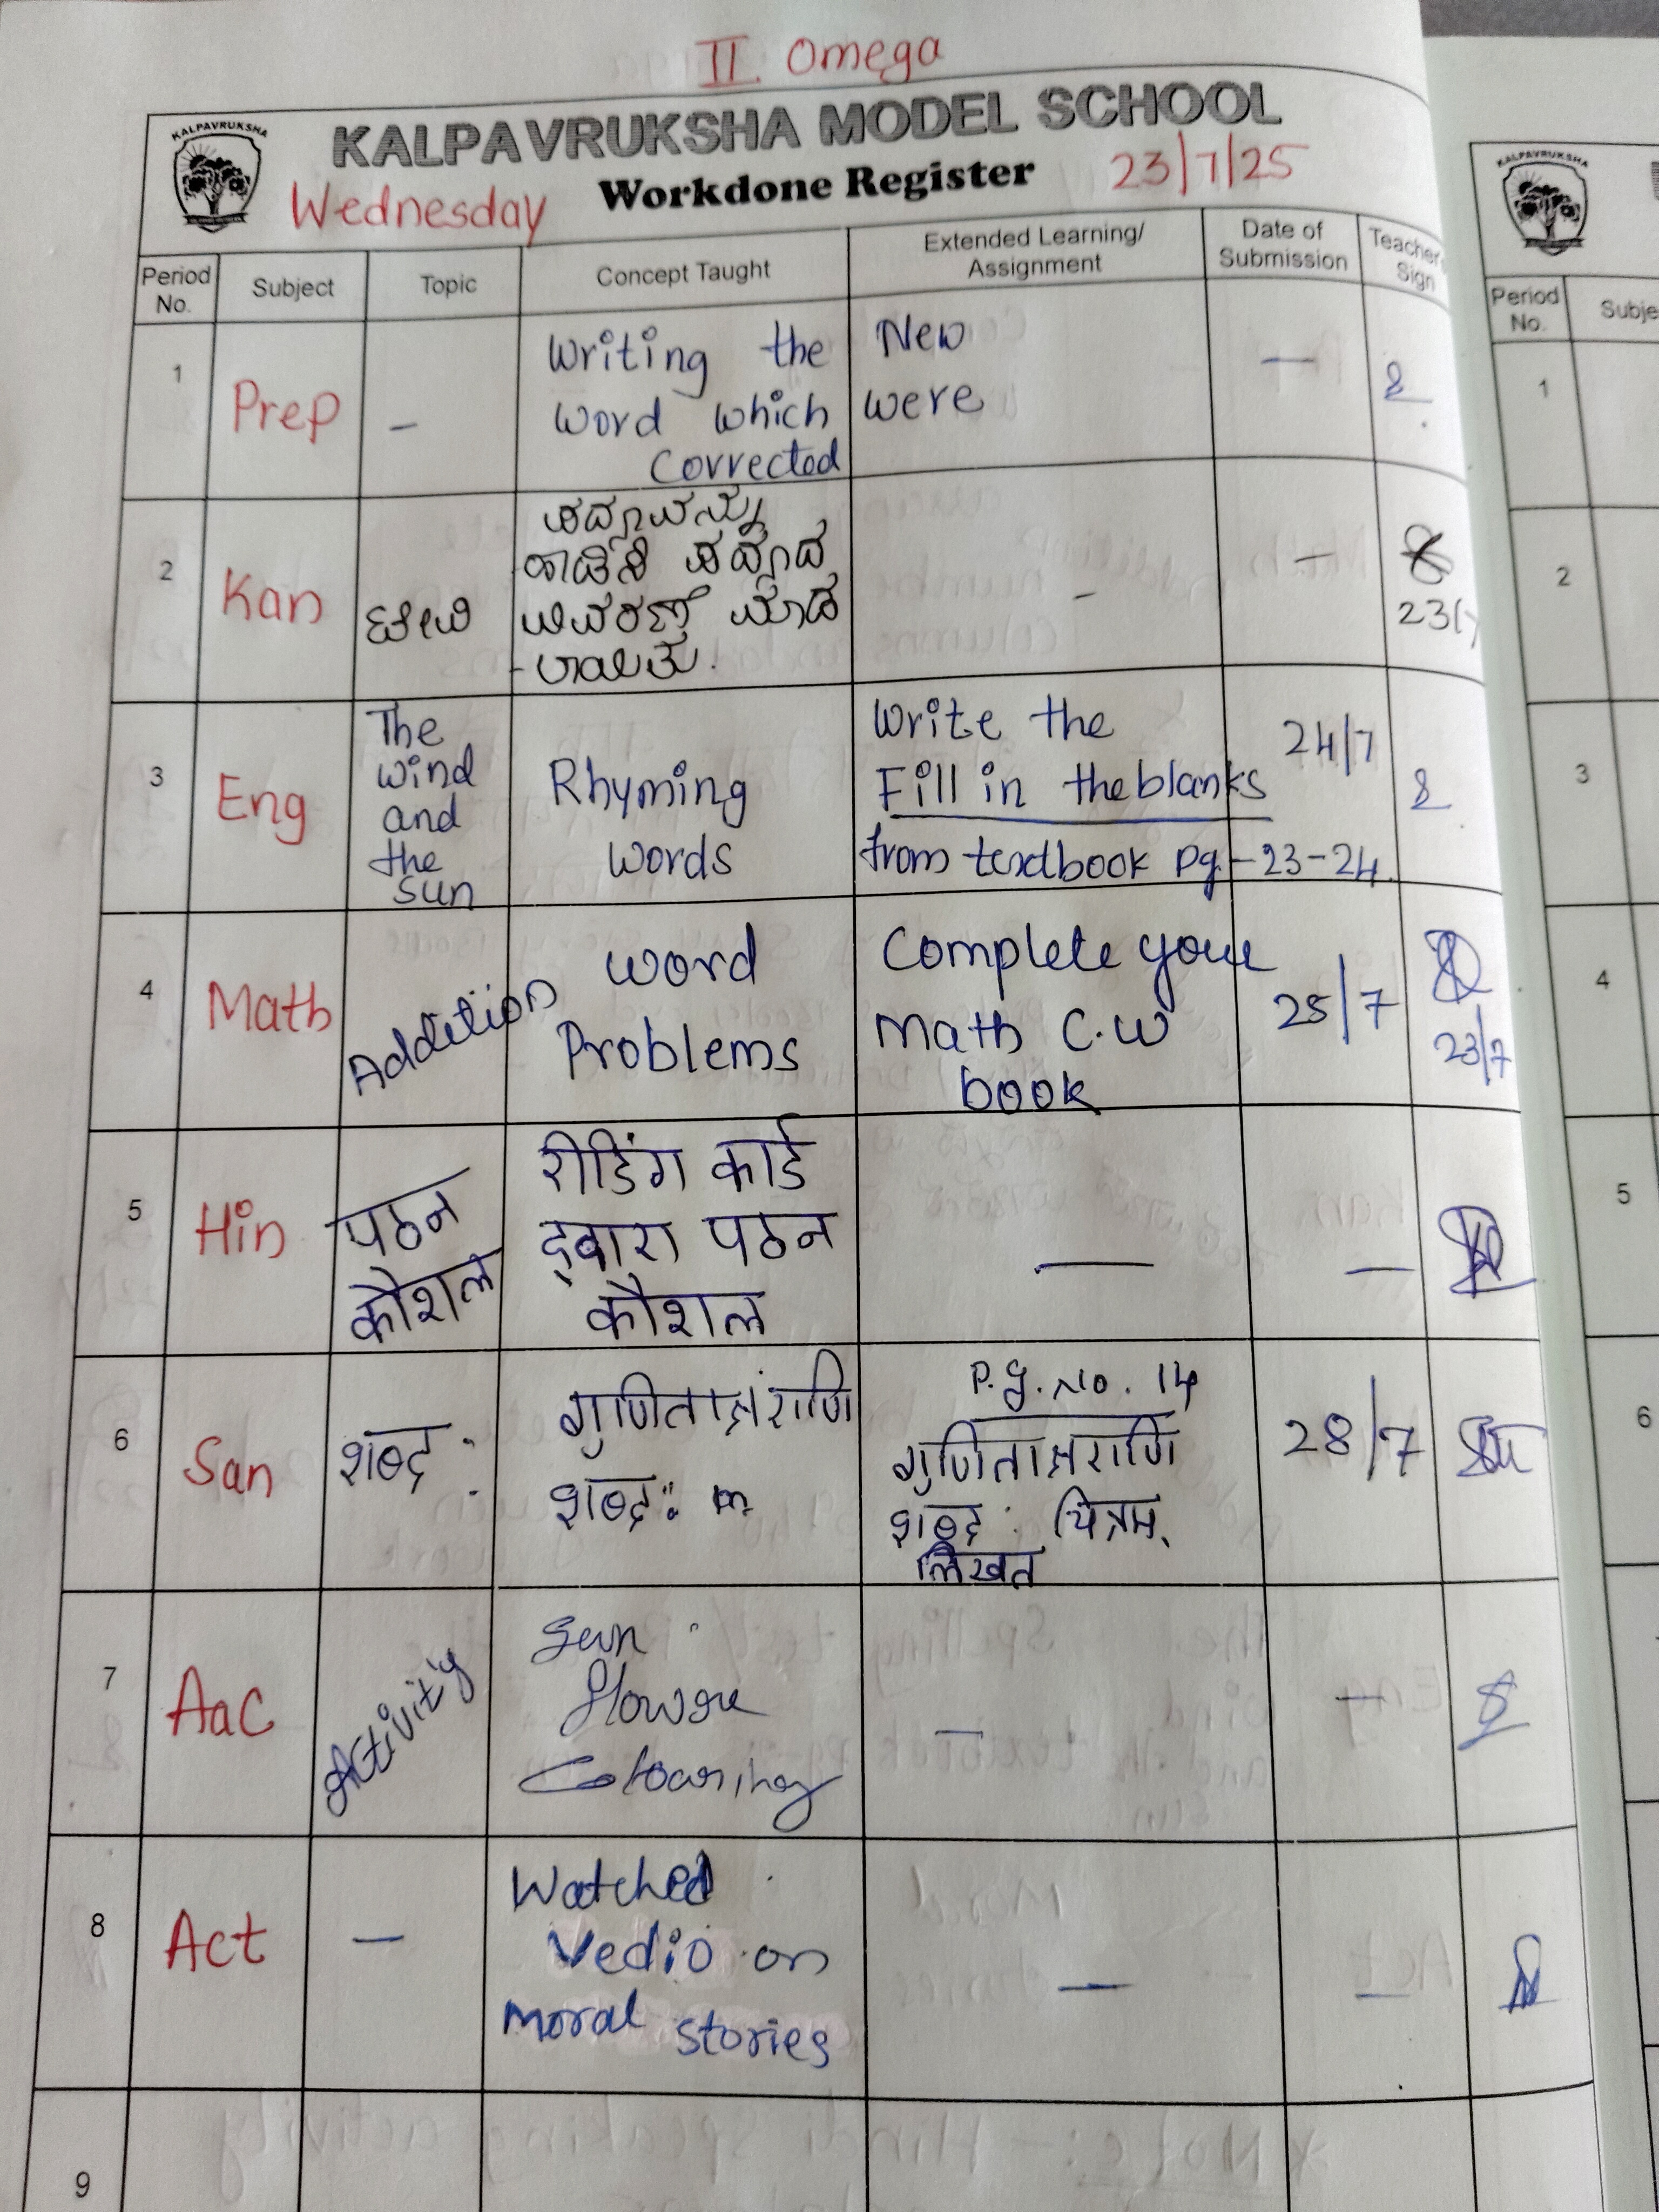 II Omega
KALPAVRUKSHA
KALPAVRUKSHA MODEL SCHOOL
Wednesday Workdone Register 23/7/25
Period No. Subject Topic Concept Taught Extended Learning/ Assignment Date of Submission Teacher Sign
1 Prep - Writing the New —
word which were
Corrected
2 Kan ಪದ್ಯವನ್ನು
ಪದ್ಯದ
ವಿವರಣೆ ಮಾಡ
-ಲಾಯಿತು.
- —
23/7
3 Eng The wind and the sun
Rhyming
words
Write the
Fill in the blanks
from textbook pg-23-24.
24/7
4 Math Addition
word
Problems
Complete your
Math C.W
book
25/7
23/7
5 Hin पठन
कौशल
रीडिंग कार्ड
द्वारा पठन
कौशल
— —
6 San शब्द:
गुणिताक्षराणि
शब्द:
P.g. No. 14
गुणिताक्षराणि
शब्द: चित्रम्
लिखत
28/7
7 AaC Activity
Sun
flower
Colouring
— —
8 Act —
Watched
Vedio on
moral stories
— —
9
KALPAVRUKSHA
Period No.
1
2
3
4
5
6